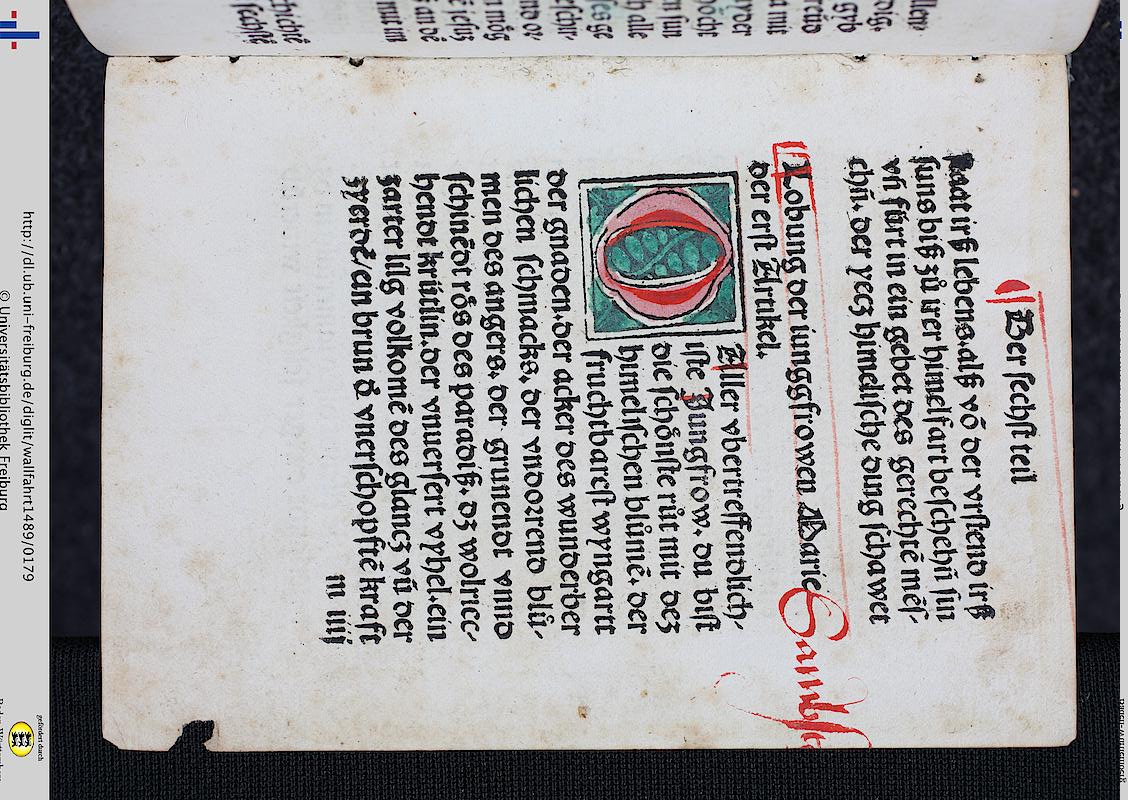 Der sechst teil
irß lebens. alß võ der vrstend irß
suns biß zů irer himelfart beschehñ sin
vñ fürt in ein gebet des gerechtē mēs-
chñ. der yecz himelische ding schawet
Lobung der iungkfrowen Marie
der erst Artikel.
O Aller vbertreffendlich-
iste Jungfrow. du bist
die schönste růt mit dez
himelischen blůmē. der
fruchtbarest wyngartt
der gnaden. der acker des wunderber
lichen schmacks. der vndorrend blů-
men des angers. der grunendt vnnd
schinēdt rös des paradiß. dz wolriec-
hendt krütlin. der vnuersert vyhel. ein
zarter lilg volkomē des glancz vñ der
zyerdē/ein brun d̄ vnerschopftē kraft
m iiij
http://dl.ub.uni-freiburg.de/diglit/wallfahrt1489/0179
© Universitätsbibliothek Freiburg
gefördert durch